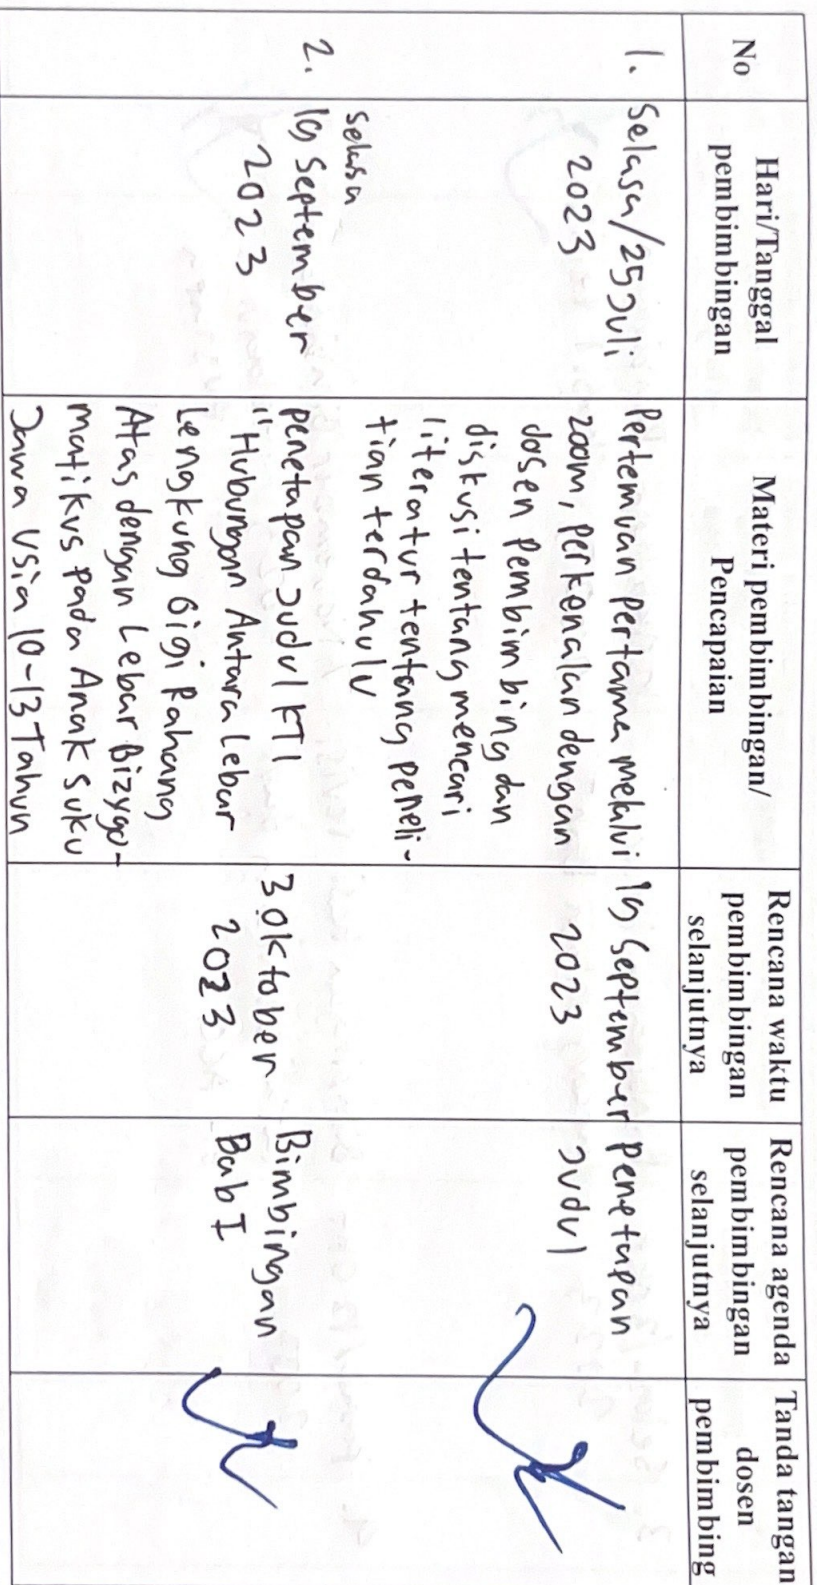 No
Hari/Tanggal
pembimbingan
Materi pembimbingan/
Pencapaian
Rencana waktu
pembimbingan
selanjutnya
Rencana agenda
pembimbingan
selanjutnya
Tanda tangan
dosen
pembimbing
1.
Selasa/25 Juli
2023
Pertemuan pertama melalui
zoom, perkenalan dengan
dosen pembimbing dan
diskusi tentang mencari
literatur tentang peneli-
tian terdahulu
19 September
2023
penetapan
Judul
2.
Selasa
19 September
2023
penetapan Judul KTI
"Hubungan Antara Lebar
Lengkung Gigi Rahang
Atas dengan Lebar Bizygo-
matikus pada Anak Suku
Jawa Usia 10-13 Tahun
3 Oktober
2023
Bimbingan
Bab I